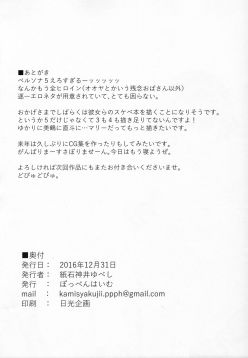 ■あとがき
ペルソナ5えろすぎるーッッッッッッ
なんかもう全ヒロイン(オオヤとかいう残念おばさん以外)
逐一エロネタが用意されていて、とても困らない。
おかげさまでしばらくは彼女らのスケベ本を描くことになりそうです。
というか5だけじゃなくて3も4も描き足りてなくないですか!
ゆかりに美鶴に直斗に…マリーだってもっと描きたいです。
来年は久しぶりにCG集を作ったりもしたいですね。
がんばりまーすさぼりませーん。今日はもう寝ようぜ。
よろしければ次回作品にもまたお付き合いくださいませ。
どぴゅどぴゅ。
■奥付
発行日: 2016年12月31日
発行者: 紙石神井ゆべし
発行: ぽっぺんはいむ
mail: kamisyakujii.ppph@gmail.com
印刷: 日光企画